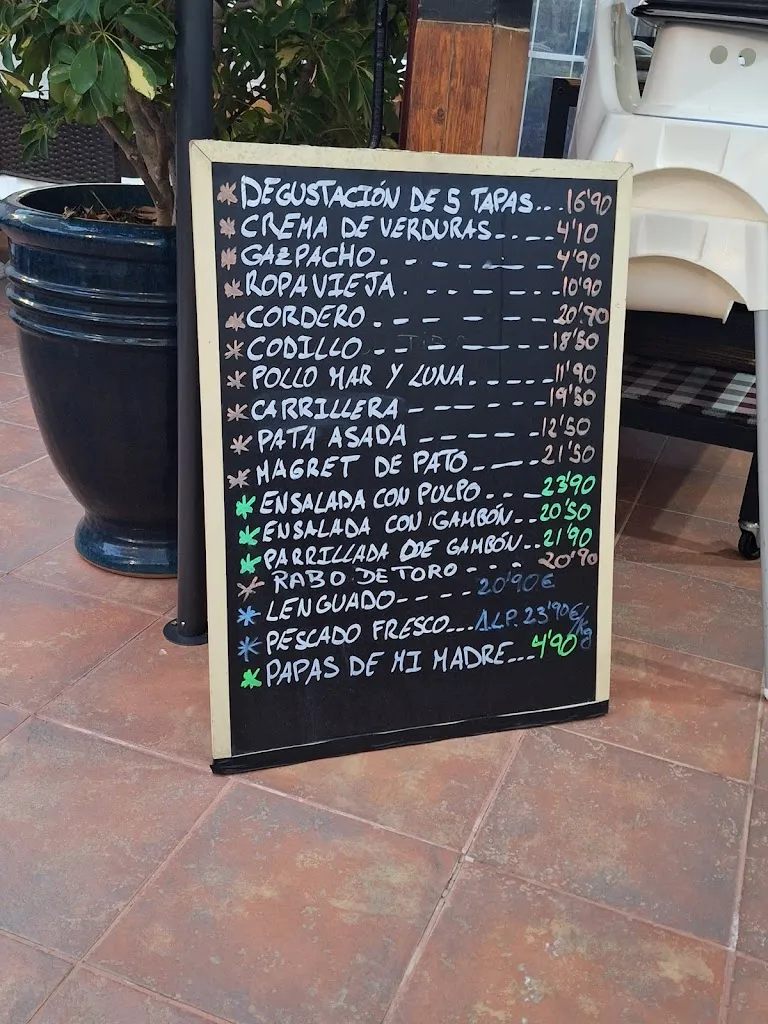 * DEGUSTACIÓN DE 5 TAPAS... 16'90
* CREMA DE VERDURAS---- 4'10
* GAZPACHO. - - - - - - 4'90
* ROPA VIEJA. - - - - - 10'90
* CORDERO. - - - - - - 20'90
* CODILLO. - - - - - - 18'50
* POLLO MAR Y LUNA. - - - - - 11'90
* CARRILLERA - - - - - 19'50
* PATA ASADA - - - - - 12'50
* MAGRET DE PATO - - - - 21'50
* ENSALADA CON PULPO. - - - 23'90
* ENSALADA CON GAMBÓN.. 20'50
* PARRILLADA DE GAMBÓN... 21'90
* RABO DE TORO - - - - 20'90
* LENGUADO---- 20'90€
* PESCADO FRESCO... A.L.P. 23'90€/Kg
* PAPAS DE MI MADRE... 4'90